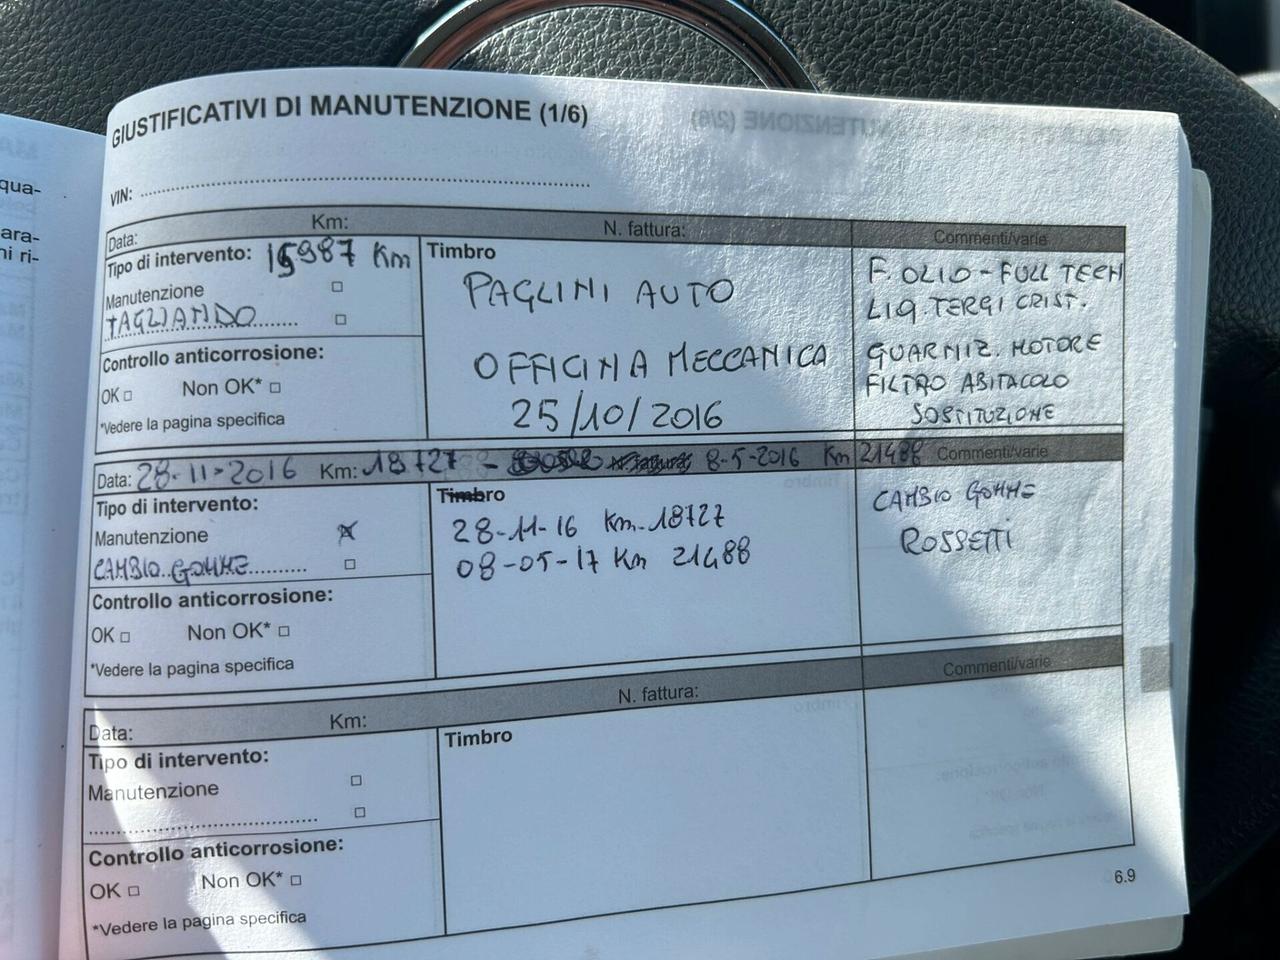 qua-
ara-
ni ri-
GIUSTIFICATIVI DI MANUTENZIONE (1/6)
VIN:
Data: Km: N. fattura: Commenti/varie
Tipo di intervento: 15987 Km
Manutenzione □
TAGLIANDO □
Controllo anticorrosione:
OK □ Non OK* □
*Vedere la pagina specifica
Timbro
PAGLINI AUTO
OFFICINA MECCANICA
25/10/2016
F. OLIO - FULL TECH
LIQ. TERGI CRIST.
GUARNIZ. MOTORE
FILTRO ABITACOLO
SOSTITUZIONE
Data: 28-11-2016 Km: 18727 - 8-5-2016 Km 21488 Commenti/varie
Tipo di intervento:
Manutenzione
CAMBIO GOMME □
Controllo anticorrosione:
OK □ Non OK* □
*Vedere la pagina specifica
Timbro
28-11-16 Km-18727
08-05-17 Km 21488
CAMBIO GOMME
ROSSETTI
Data: Km: N. fattura: Commenti/varie
Tipo di intervento:
Manutenzione □
□
Controllo anticorrosione:
OK □ Non OK* □
*Vedere la pagina specifica
Timbro
6.9